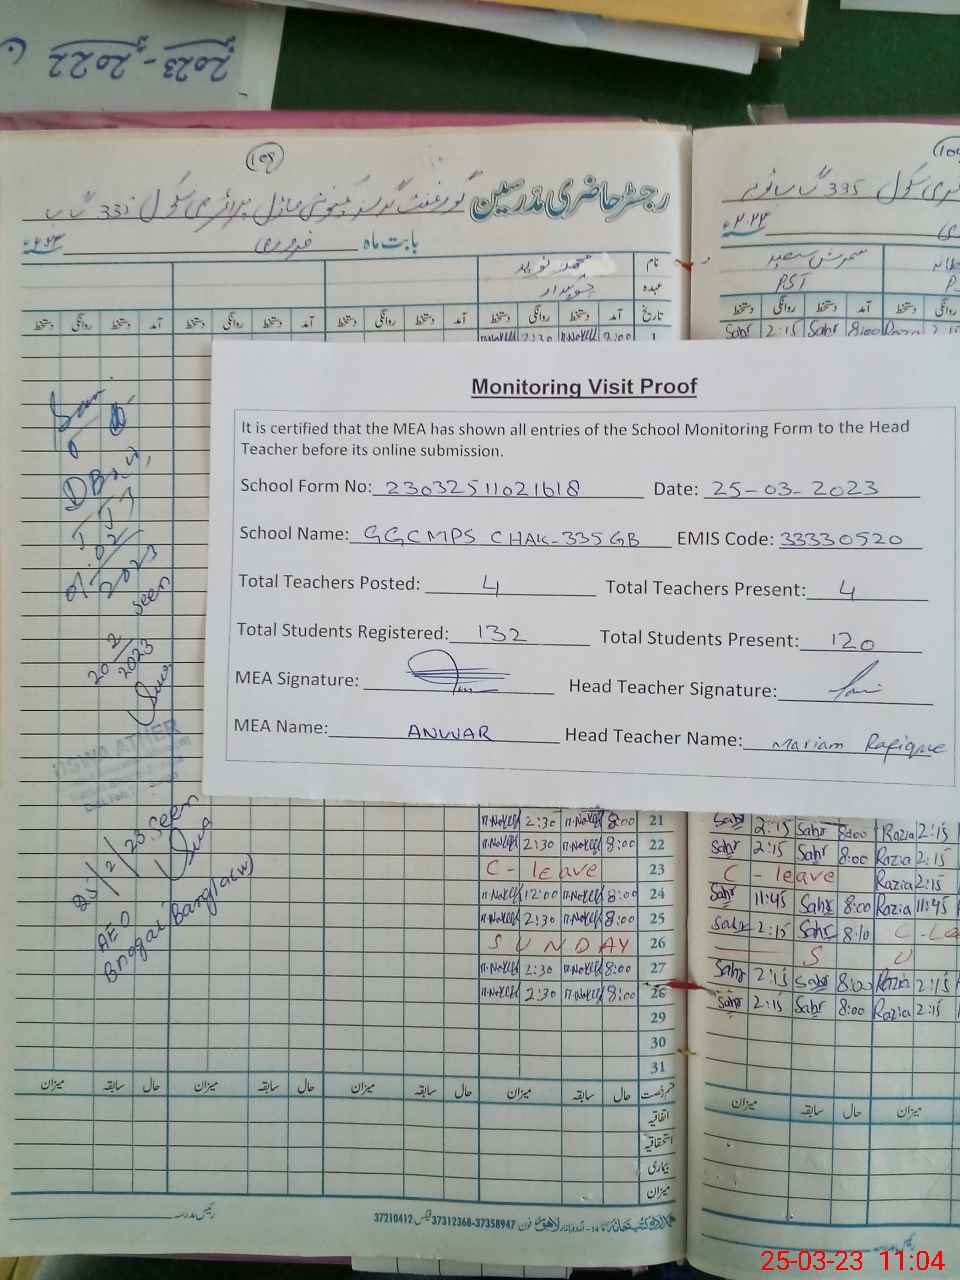 2022-2023
108
رجسٹر حاضری مدرسین گورنمنٹ گرلز کمیونٹی ماڈل پرائمری سکول 335 گ ب
بابت ماہ فروری
نام
عہدہ چوکیدار
تاریخ آمد دستخط روانگی دستخط آمد دستخط روانگی دستخط آمد دستخط روانگی دستخط آمد دستخط روانگی دستخط
PST
دستخط روانگی دستخط آمد دستخط روانگی
Sahr 2:15 Sahr 8:00 Razia 2:15
Monitoring Visit Proof
It is certified that the MEA has shown all entries of the School Monitoring Form to the Head
Teacher before its online submission.
School Form No: 23032511021618 Date: 25-03-2023
School Name: GGCMPS CHAK-335GB EMIS Code: 33330520
Total Teachers Posted: 4 Total Teachers Present: 4
Total Students Registered: 132 Total Students Present: 120
MEA Signature: Head Teacher Signature:
MEA Name: ANWAR Head Teacher Name: Mariam Rafique
01-02
2023
seen
20 2
2023
25/2/23 seen
AEO
2:30 8:00 21
2:30 8:00 22
C - leave 23
12:00 8:00 24
2:30 8:00 25
SUNDAY 26
2:30 8:00 27
2:30 8:00 28
29
30
31
Sahr 2:15 Sahr 8:00 Razia 2:15
Sahr 2:15 Sahr 8:00 Razia 2:15
C - leave Razia 2:15
Sahr 11:45 Sahr 8:00 Razia 11:45
Sahr 2:15 Sahr 8:10
S U
Sahr 2:15 Sahr 8:00 Razia 2:15
Sahr 2:15 Sahr 8:00 Razia 2:15
حال سابقہ میزان حال سابقہ میزان حال سابقہ میزان حال سابقہ میزان
میزان سابقہ حال میزان
اتفاقیہ
استحقاقیہ
بیماری
میزان
رئیس مدرسہ
فون 37312368-37358947 فیکس 37210412
25-03-23 11:04